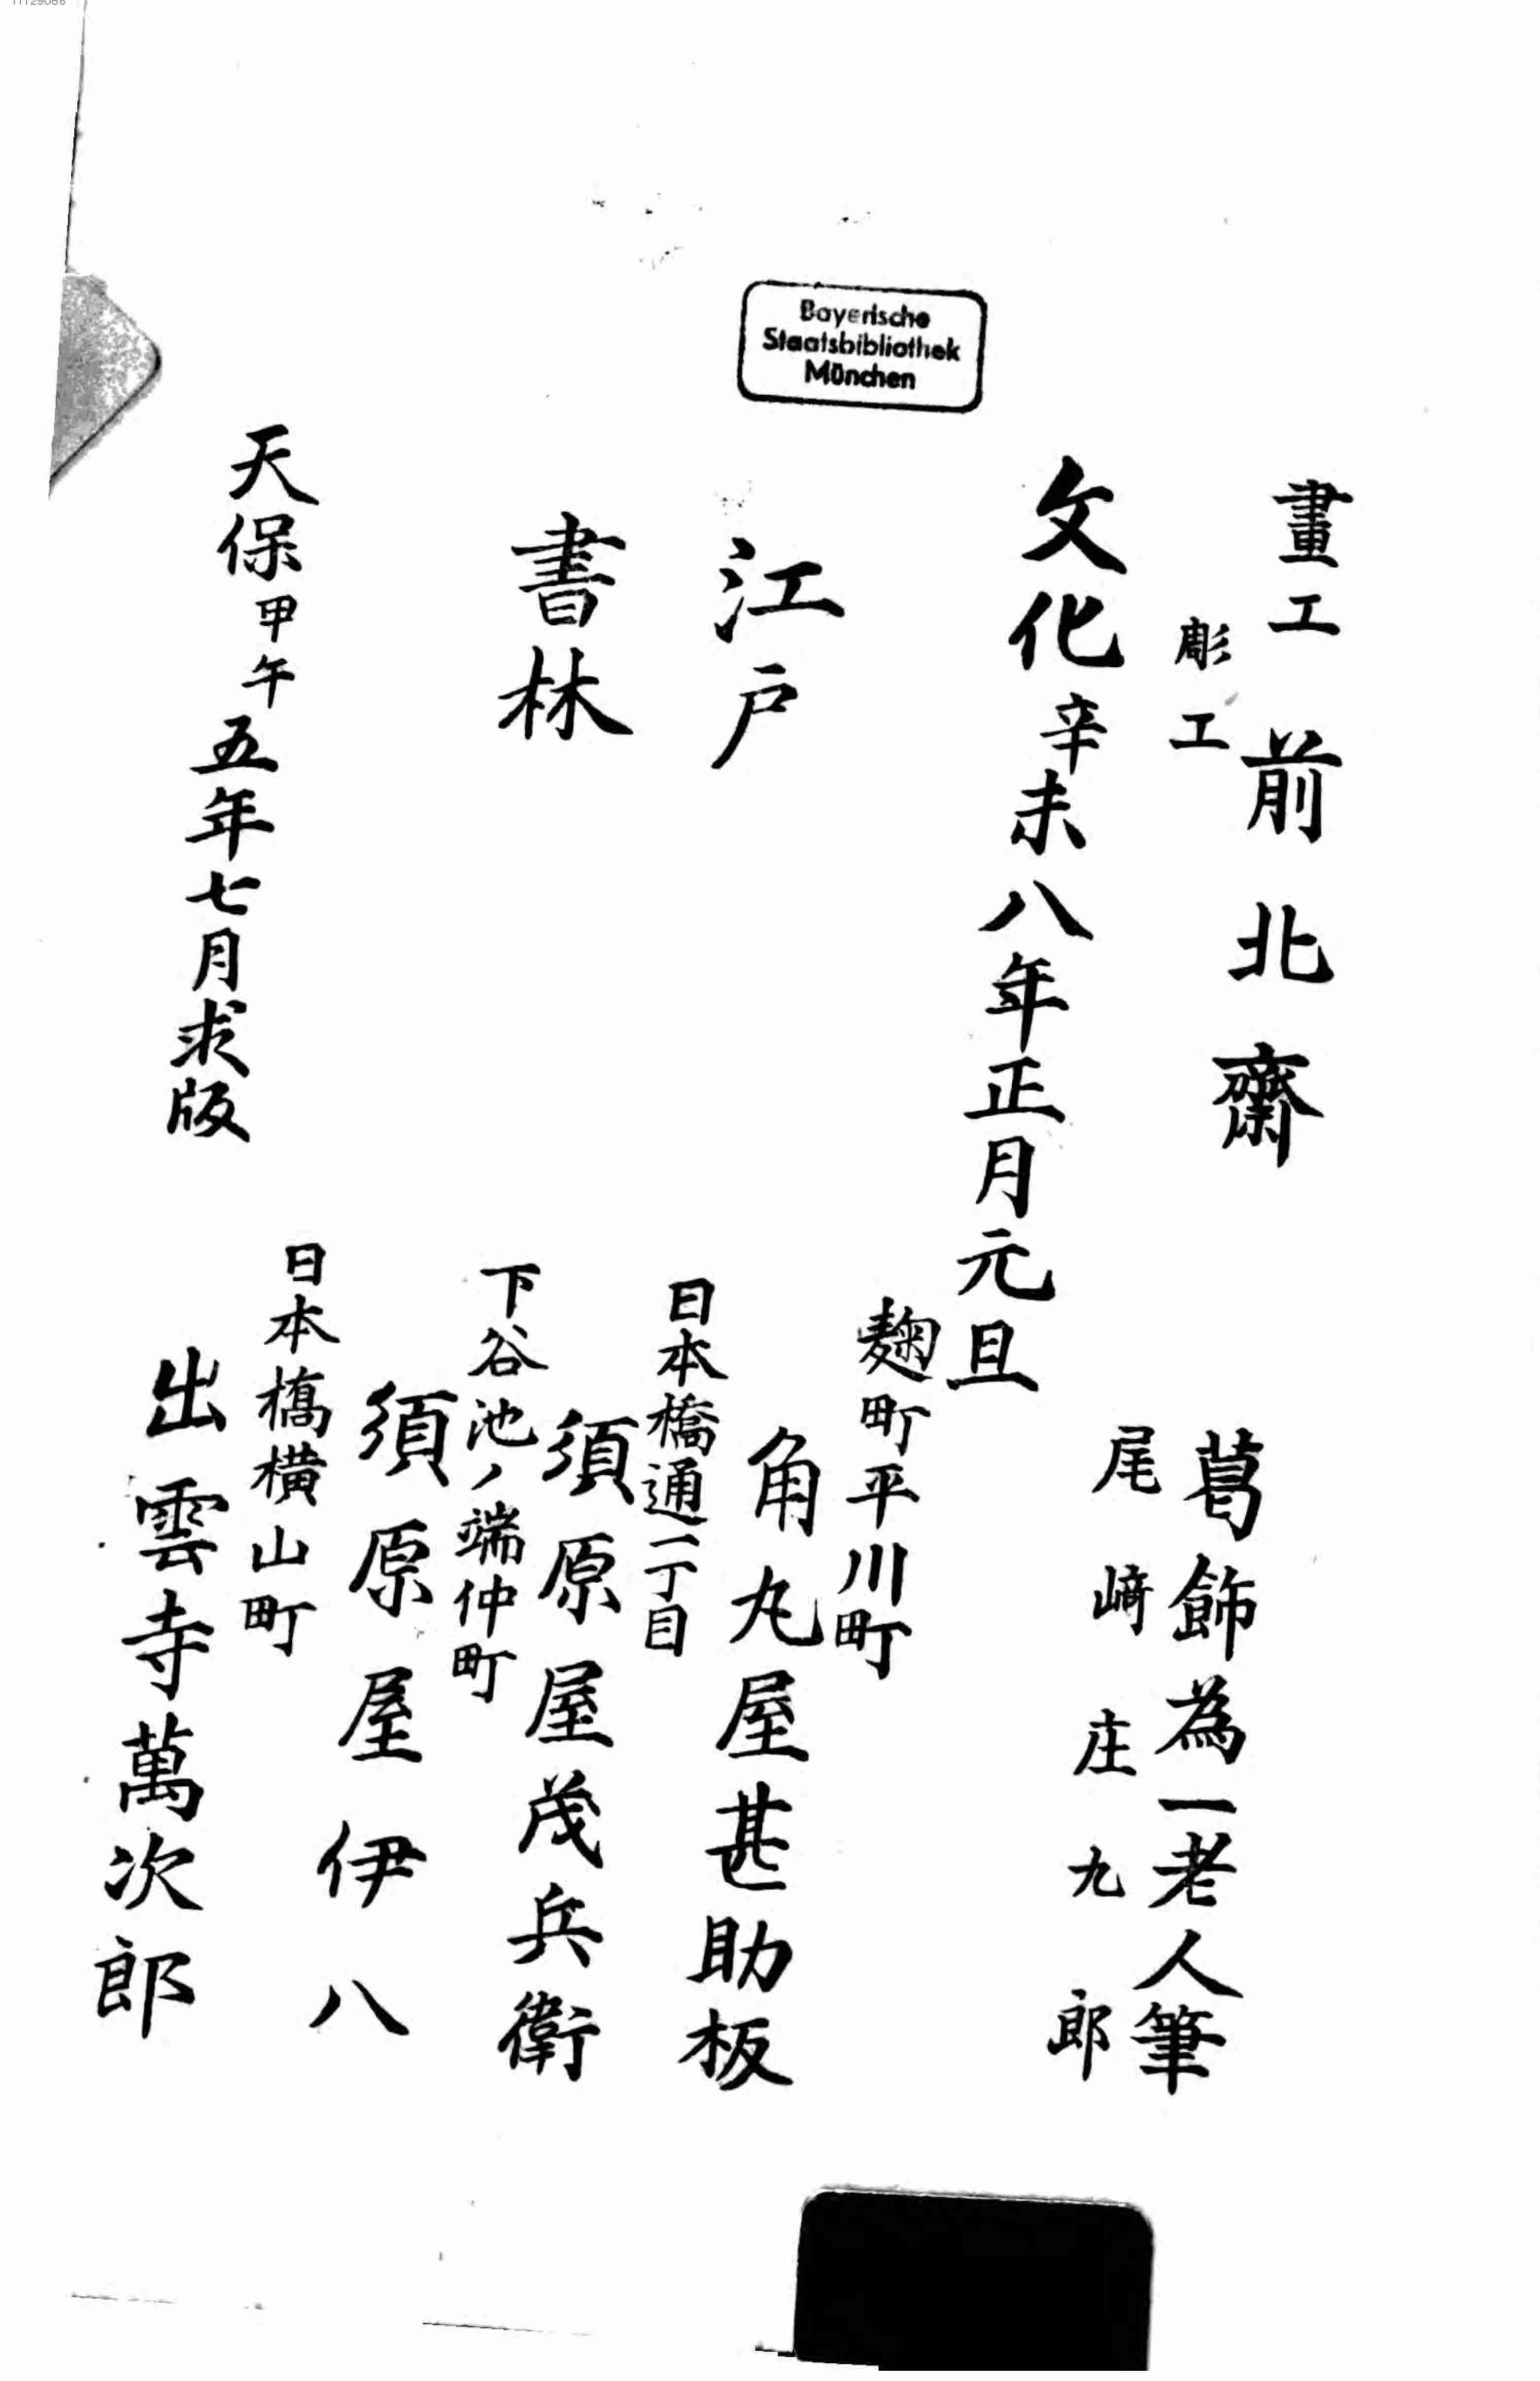 11129086
Bayerische
Staatsbibliothek
München
畫工 前北齋 葛飾為一老人筆
彫工 尾﨑庄九郎
文化辛未八年正月元旦
江戸
書林
麹町平川町
角丸屋甚助板
日本橋通一丁目
須原屋茂兵衛
下谷池ノ端仲町
須原屋伊八
日本橋横山町
出雲寺萬次郎
天保甲午五年七月求版